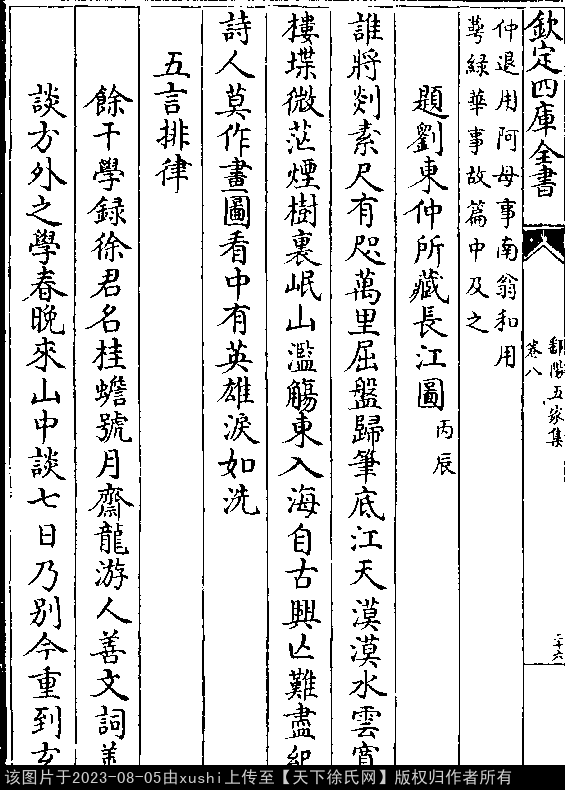 欽定四庫全書
鄱陽五家集
卷八
二十六
仲退用阿母事南翁和用
萼綠華事故篇中及之
題劉東仲所藏長江圖
丙辰
誰將剡素尺有咫萬里屈盤歸筆底江天漠漠水雲
樓堞微茫煙樹裏岷山濫觴東入海自古興亡難盡
詩人莫作畫圖看中有英雄淚如洗
五言排律
餘干學録徐君名桂蟾號月齋龍游人善文詞
談方外之學春晚來山中談七日乃别今重到
该图片于2023-08-05由xushi上传至【天下徐氏网】版权归作者所有